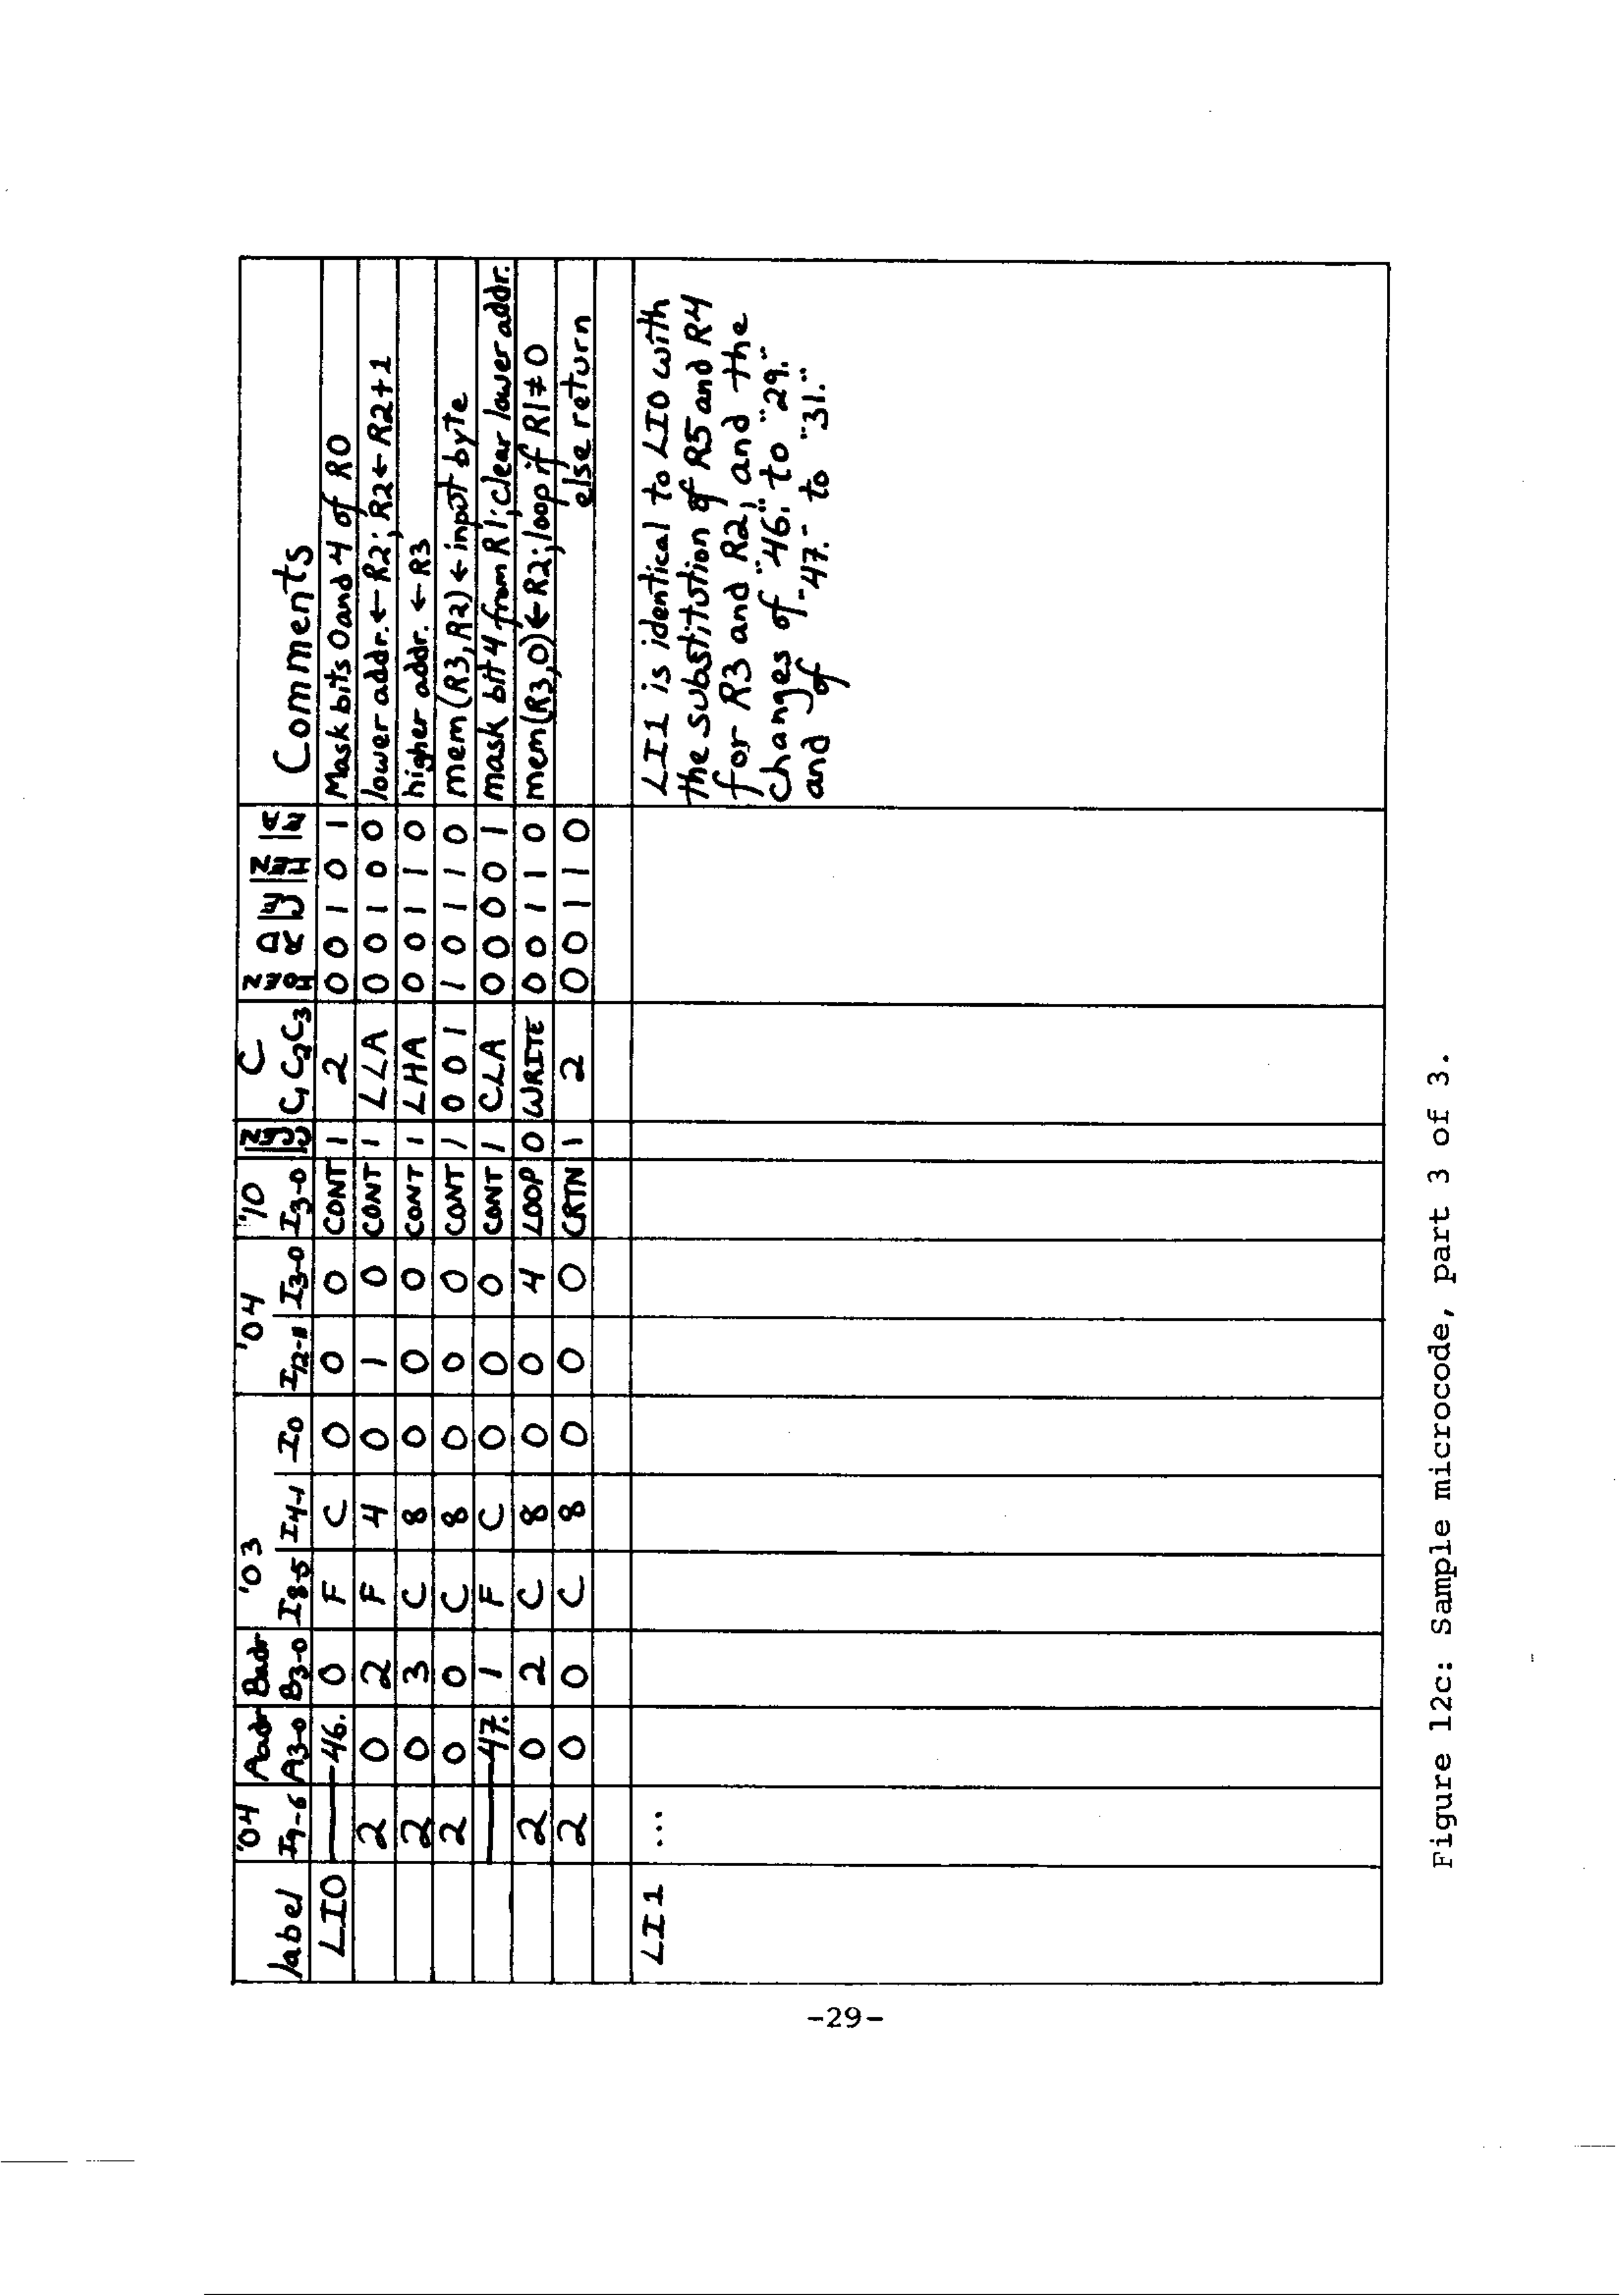 '04 Aadr Badr '03 '04 '10 C
label I9-6 A3-0 B3-0 I8-5 I4-1 I0 I12-11 I3-0 I3-0 C1 C2 C3 Comments
LI0 46. 0 F C 0 0 0 CONT 1 2 0 0 1 0 1 Mask bits 0 and 4 of R0
2 0 2 F 4 0 1 0 CONT 1 LLA 0 0 1 0 0 lower addr. ← R2; R2 ← R2+1
2 0 3 C 8 0 0 0 CONT 1 LHA 0 0 1 1 0 higher addr. ← R3
2 0 0 C 8 0 0 0 CONT 1 0 0 1 1 0 1 1 0 mem(R3,R2) ← input byte
47. 1 F C 0 0 0 CONT 1 CLA 0 0 0 0 1 mask bit 4 from R1; clear lower addr.
2 0 2 C 8 0 0 4 LOOP 0 WRITE 0 0 1 1 0 mem(R3,0) ← R2; loop if R1≠0
2 0 0 C 8 0 0 0 CRTN 1 2 0 0 1 1 0 else return
LI1 ... LI1 is identical to LI0 with
the substitution of R5 and R4
for R3 and R2, and the
changes of "46." to "29."
and of "47." to "31."
Figure 12c: Sample microcode, part 3 of 3.
-29-